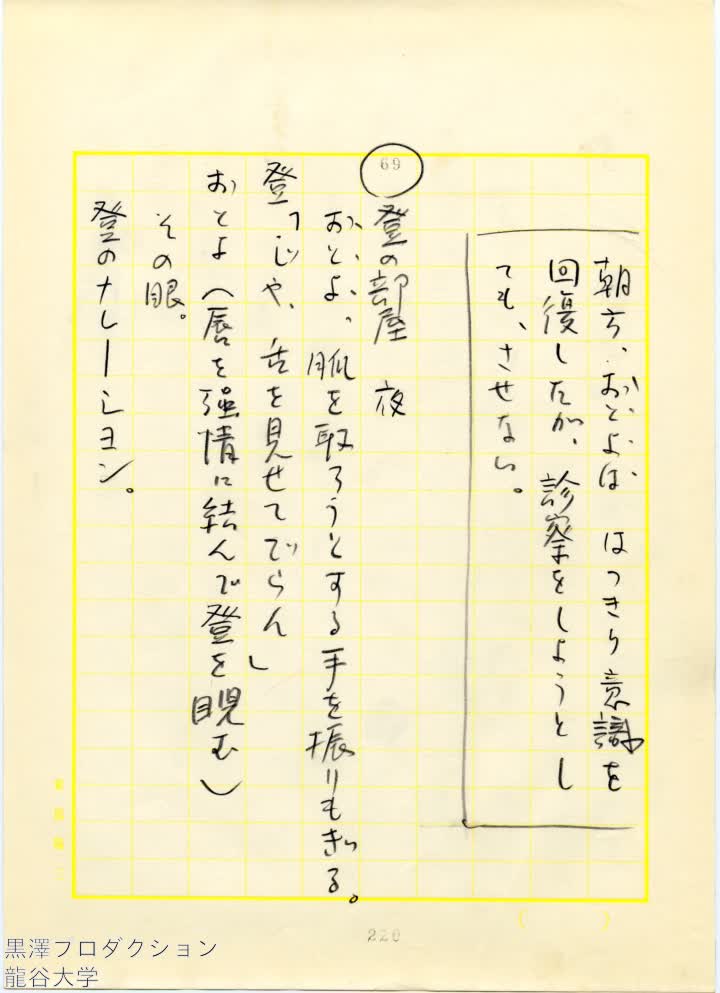 69
朝方、おとよは はつきり意識を
回復したが、診察をしようとし
ても、させない。
登の部屋 夜
おとよ、脈を取ろうとする手を振りもぎる。
登「じや、舌を見せてごらん」
おとよ(唇を強情に結んで登を睨む)
その眼。
登のナレーション。
220
黒澤プロダクション
龍谷大学